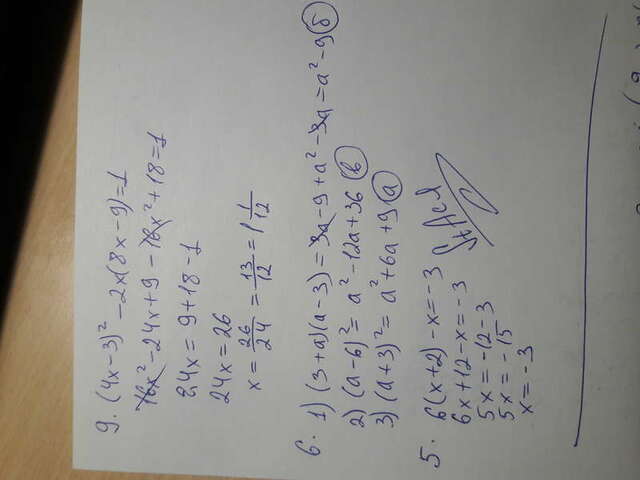 9. (4x-3)² -2x(8x-9)=1
16x² -24x+9 -16x²+18=1
24x = 9+18-1
24x=26
x= 26/24 = 13/12 = 1 1/12
6. 1) (3+a)(a-3)=3a-9+a²-3a=a²-9 б
2) (a-6)²= a²-12a+36 в
3) (a+3)²= a²+6a+9 а
5. 6(x+2)-x=-3
6x+12-x=-3
5x=-12-3
5x=-15
x=-3